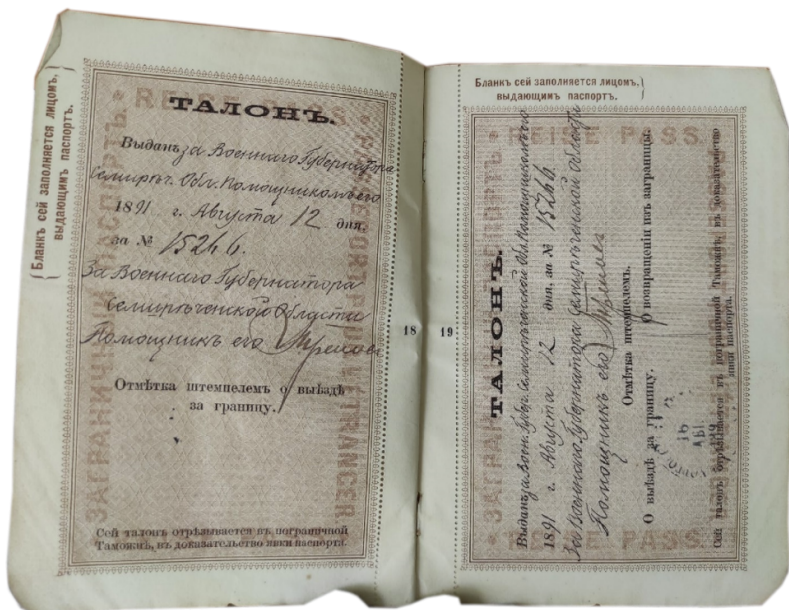 Бланкъ сей заполняется лицомъ,
выдающимъ паспортъ.
REISE PASS.
ТАЛОНЪ.
Выданъ за Военнаго Губернатора
Семирѣч. Обл. Помощникомъ его
1891 г. Августа 12 дня,
за № 15266.
За Военнаго Губернатора
Семирѣченской Области
Помощникъ его
Отмѣтка штемпелемъ о выѣздѣ
за границу.
Сей талонъ отрѣзывается въ пограничной
Таможнѣ, въ доказательство явки паспорта.
18
19
Бланкъ сей заполняется лицомъ,
выдающимъ паспортъ.
REISE PASS.
ТАЛОНЪ.
Выданъ за Воен. Губер. Семирѣченской Обл. Помощникомъ его
1891 г. Августа 12 дня, за № 15266.
За Военнаго Губернатора Семирѣченской Области
Помощникъ его
Отмѣтка штемпелемъ.
О выѣздѣ за границу. О возвращеніи изъ заграницы.
Сей талонъ отрѣзывается въ пограничной Таможнѣ, въ доказательство
явки паспорта.
REISE PASS.